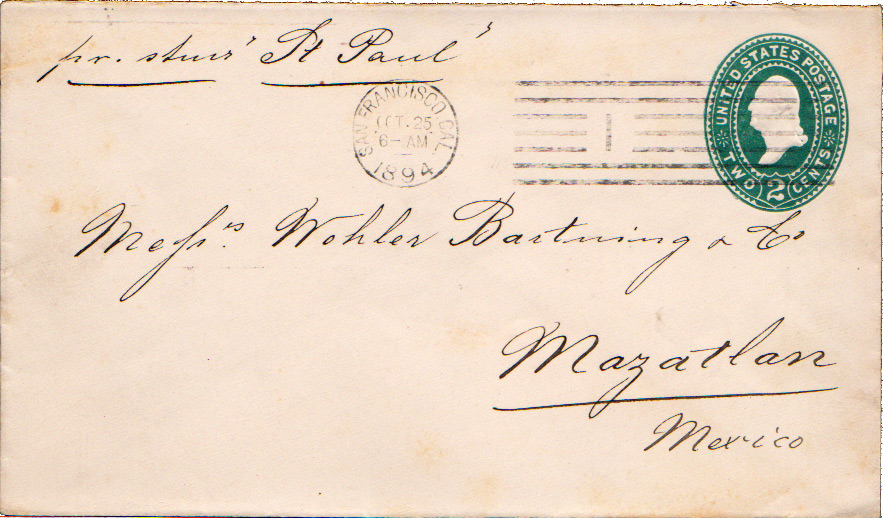 pr. stmr "St Paul"
SAN FRANCISCO, CAL.
OCT. 25
6-AM
1894
1
UNITED STATES POSTAGE
TWO 2 CENTS
Messrs. Wohler Bartning & Co
Mazatlan
Mexico